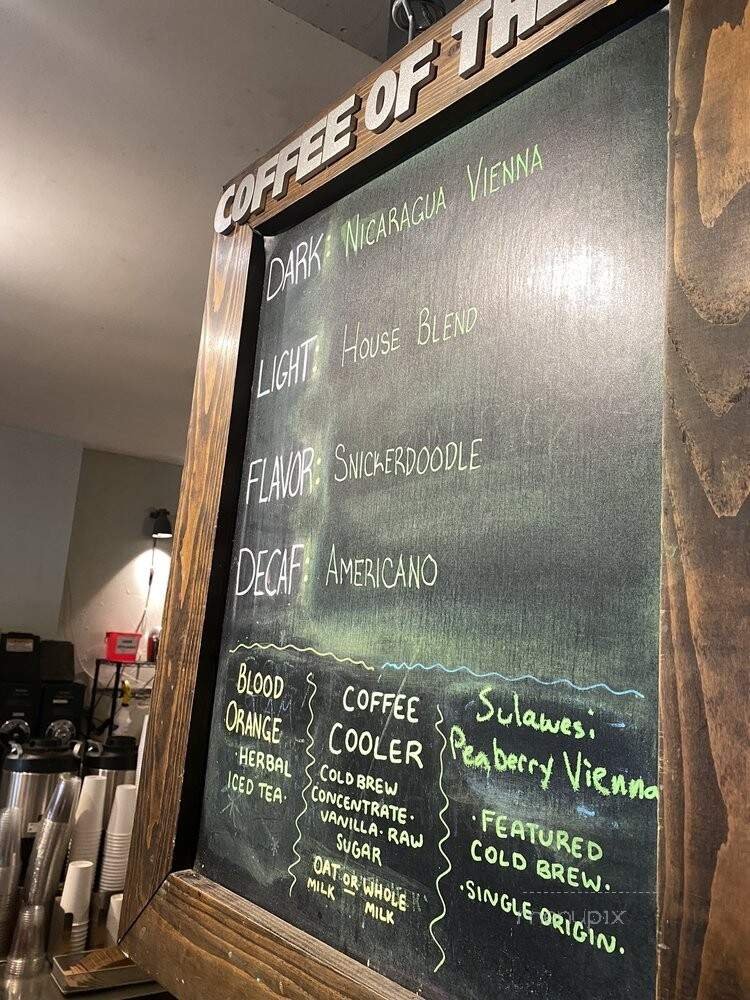 COFFEE OF THE
DARK: NICARAGUA VIENNA
LIGHT: HOUSE BLEND
FLAVOR: SNICKERDOODLE
DECAF: AMERICANO
BLOOD
ORANGE
·HERBAL
ICED TEA·
COFFEE
COOLER
COLD BREW
CONCENTRATE·
VANILLA·RAW
SUGAR
OAT OR WHOLE
MILK — MILK
Sulawesi
Peaberry Vienna
·FEATURED
COLD BREW.
·SINGLE ORIGIN.
menupix